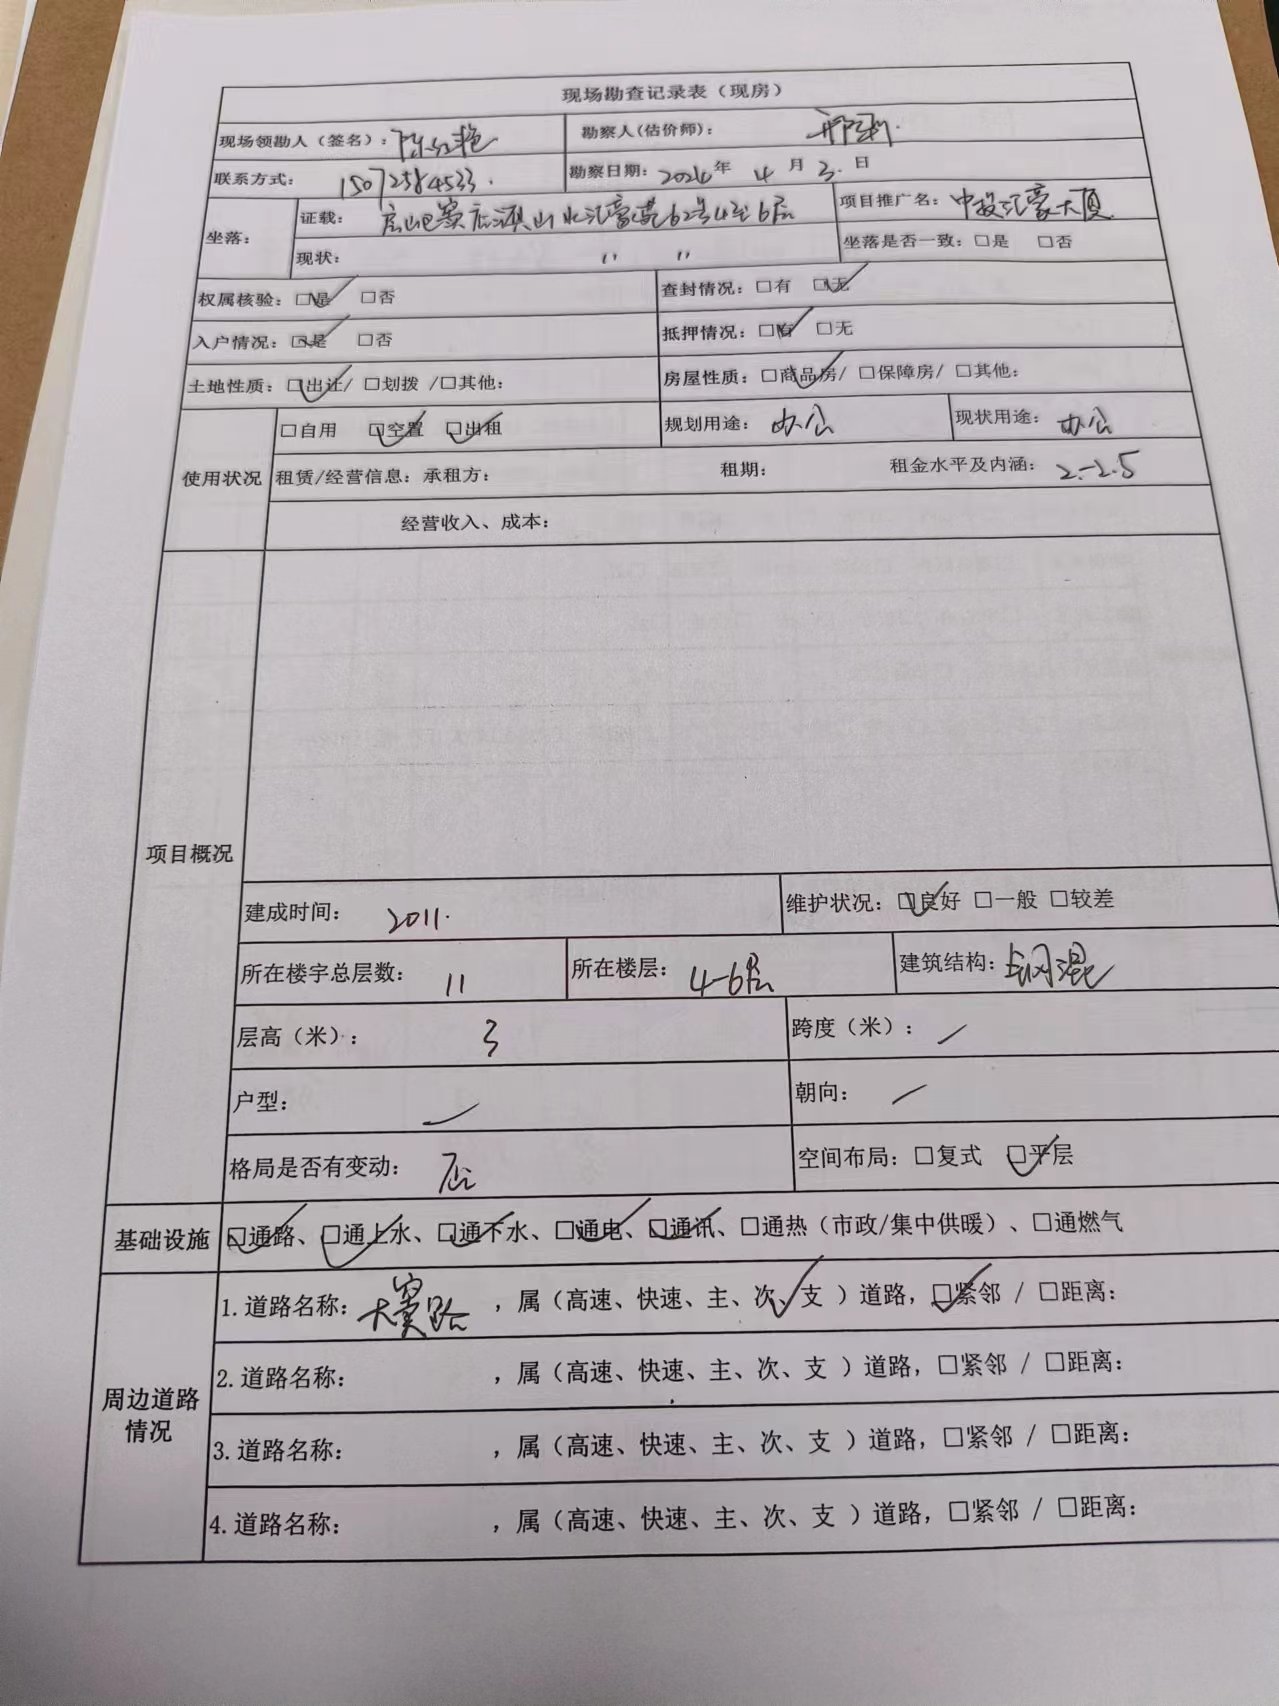 现场勘查记录表（现房）
现场领勘人（签名）：陈红艳 勘察人(估价师)：
联系方式： 15072584533. 勘察日期：2024年 4 月 3. 日
坐落： 证载： 房山区窦店镇山水汇豪苑62号4至6层 项目推广名：中投汇豪大厦
现状： 〃 〃 坐落是否一致：□是 □否
权属核验：☑是 □否 查封情况：□有 ☑无
入户情况：☑是 □否 抵押情况：☑有 □无
土地性质：☑出让/ □划拨 /□其他： 房屋性质：☑商品房/ □保障房/ □其他：
使用状况 □自用 ☑空置 ☑出租 规划用途： 办公 现状用途： 办公
租赁/经营信息：承租方： 租期： 租金水平及内涵： 2.-2.5
经营收入、成本：
项目概况
建成时间： 2011. 维护状况：☑良好 □一般 □较差
所在楼宇总层数： 11 所在楼层： 4-6层 建筑结构：钢混
层高（米）： 3 跨度（米）： /
户型： / 朝向： /
格局是否有变动： 否 空间布局：□复式 ☑平层
基础设施 ☑通路、☑通上水、☑通下水、☑通电、☑通讯、□通热（市政/集中供暖）、□通燃气
周边道路情况
1.道路名称：大窦路 ，属（高速、快速、主、次、支√）道路，☑紧邻 / □距离：
2.道路名称： ，属（高速、快速、主、次、支 ）道路，□紧邻 / □距离：
3.道路名称： ，属（高速、快速、主、次、支 ）道路，□紧邻 / □距离：
4.道路名称： ，属（高速、快速、主、次、支 ）道路，□紧邻 / □距离：